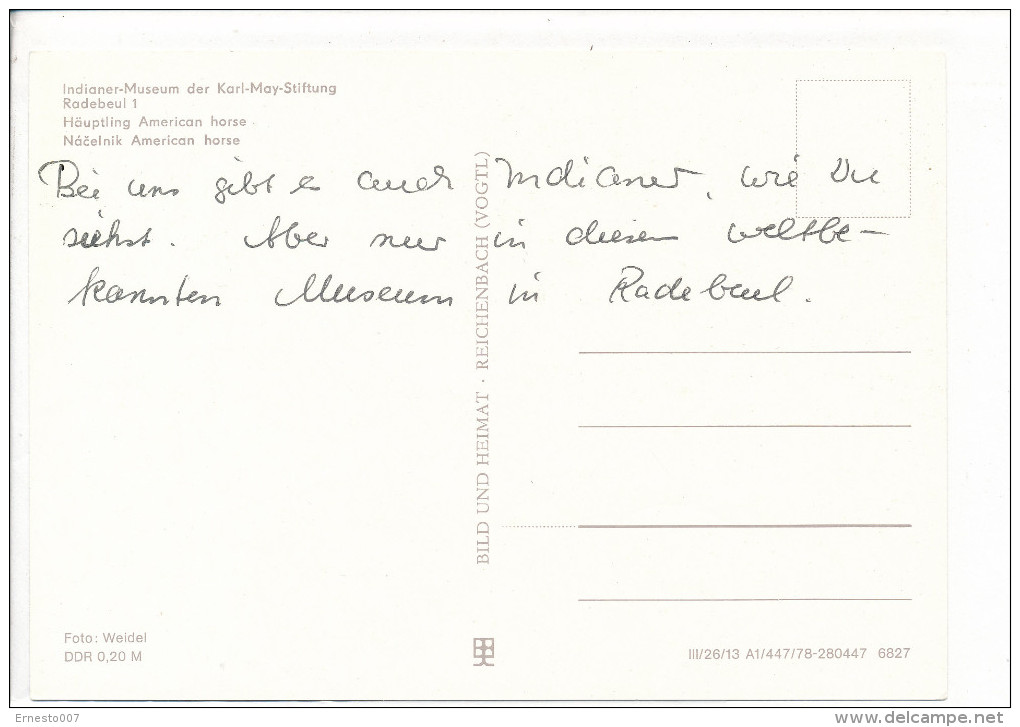 Indianer-Museum der Karl-May-Stiftung
Radebeul 1
Häuptling American horse
Náčelnik American horse
Bei uns gibt es auch Indianer, wie Du
siehst. Aber nur in diesem weltbe-
kannten Museum in Radebeul.
BILD UND HEIMAT · REICHENBACH (VOGTL)
Foto: Weidel
DDR 0,20 M
III/26/13 A1/447/78-280447 6827
Ernesto007
delcampe.net